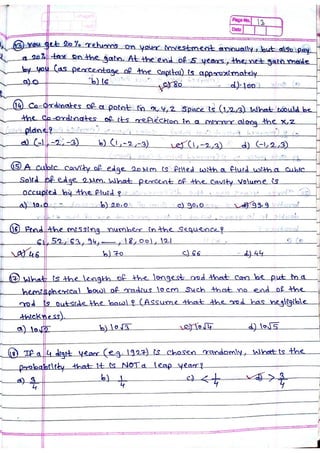 Page No. 13
Date
(13) You get 20% returns on your investment annually, but also pay
a 20% tax on the gain. At the end of 5 years, the net gain made
by you (as percentage of the capital) is approximately
a) 0 b) 16 c) 80 d) 100
(14) Co-ordinates of a point in x,y,z space is (1,2,3) What would be
the co-ordinates of its reflection in a mirror along the x,z
plane?
a) (-1,-2,-3) b) (1,-2,-3) c) (1,-2,3) d) (-1,2,3)
(15) A cubic cavity of edge 20um is filled with a fluid with a cubic
solid of edge 2um. What percent of the cavity volume is
occupied by the fluid?
a) 10.0 b) 20.0 c) 90.0 d) 99.9
(16) Find the missing number in the sequence?
61, 52, 63, 94, __, 18, 001, 121
a) 46 b) 70 c) 66 d) 44
(17) What is the length of the longest rod that can be put in a
hemispherical bowl of radius 10cm such that no end of the
rod is outside the bowl? (Assume that the rod has negligible
thickness).
a) 10√2 b) 10√3 c) 10√4 d) 10√5
(18) If a 4 digit year (e.g. 1927) is chosen randomly, what is the
probability that it is NOT a leap year?
a) 3/4 b) 1/4 c) < 1/4 d) > 3/4